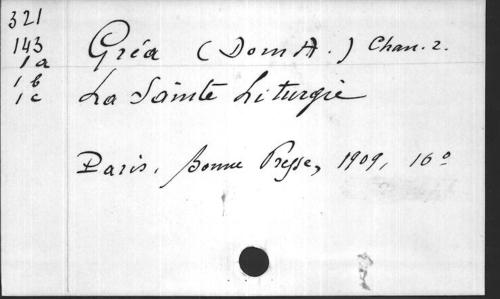 321
143
1a Gréa (Dom A.) Chan. r.
1b
1c La Sainte Liturgie
Paris, Bonne Presse, 1909, 16º